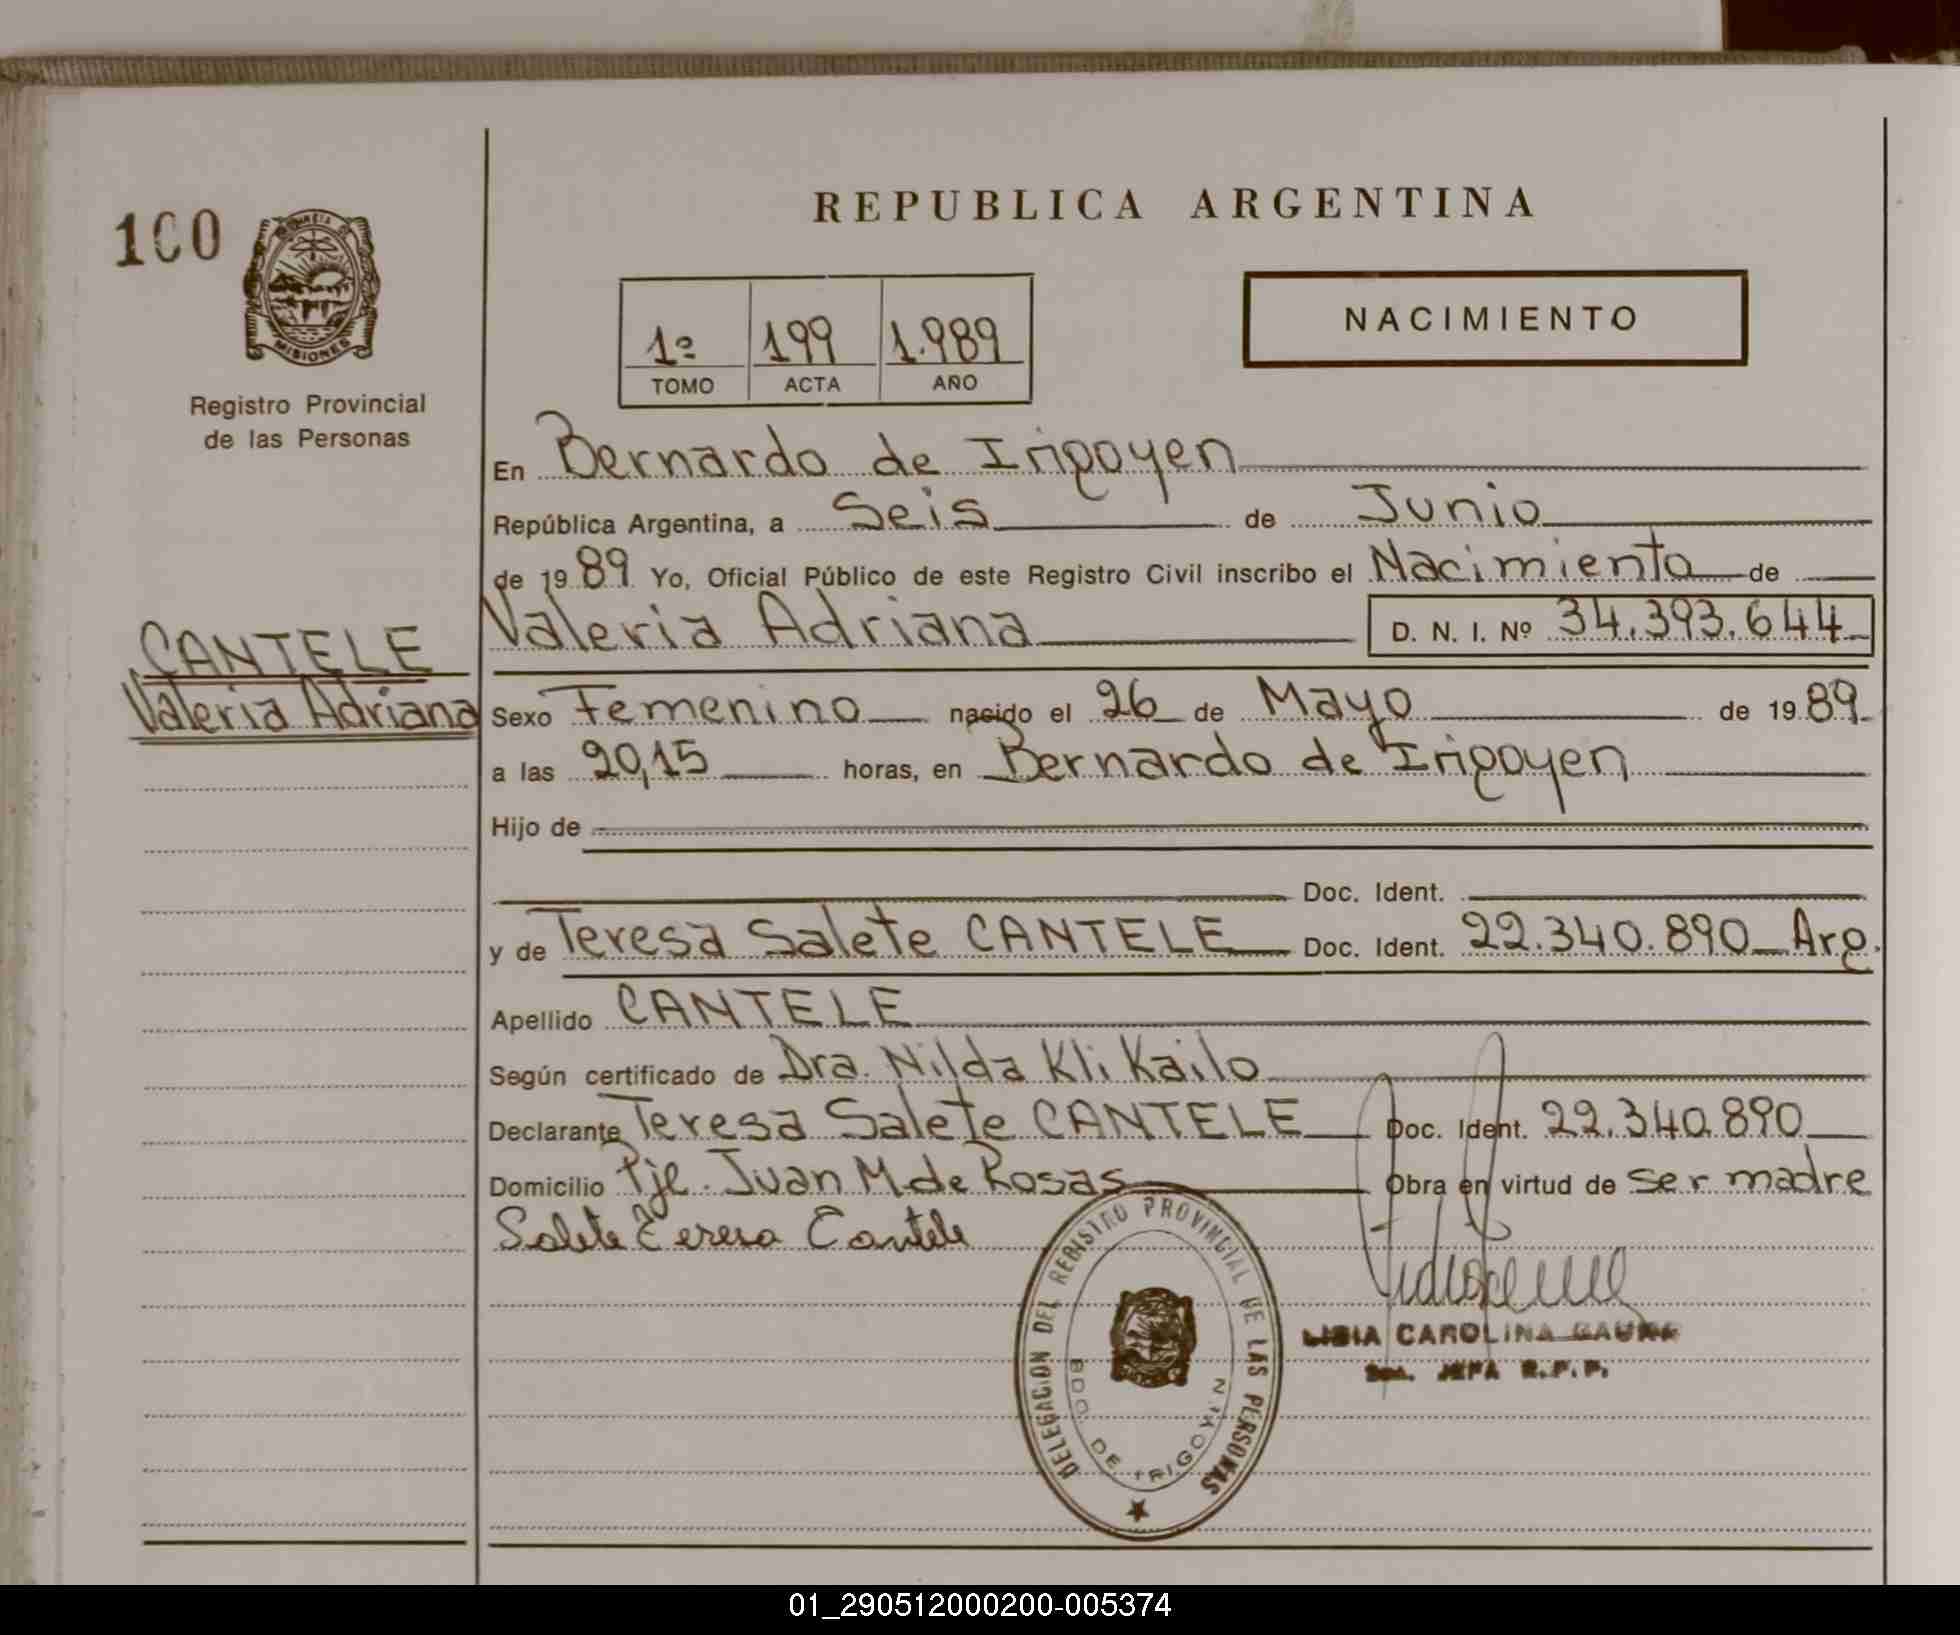 100
MISIONES
Registro Provincial
de las Personas
REPUBLICA ARGENTINA
1º 199 1.989
TOMO ACTA AÑO
NACIMIENTO
En Bernardo de Irigoyen
República Argentina, a Seis de Junio
de 1989 Yo, Oficial Público de este Registro Civil inscribo el Nacimiento de
Valeria Adriana D. N. I. Nº 34.393.644
CANTELE
Valeria Adriana
Sexo Femenino nacido el 26 de Mayo de 1989
a las 20,15 horas, en Bernardo de Irigoyen
Hijo de
Doc. Ident.
y de Teresa Salete CANTELE Doc. Ident. 22.340.890 Arg.
Apellido CANTELE
Según certificado de Dra. Nilda Kli Kailo
Declarante Teresa Salete CANTELE Doc. Ident. 22.340.890
Domicilio Pje. Juan M. de Rosas Obra en virtud de ser madre
Salete Teresa Cantele
DELEGACION DEL REGISTRO PROVINCIAL DE LAS PERSONAS
BDO. DE IRIGOYEN
LIBIA CAROLINA
JEFA R.P.P.
01_290512000200-005374